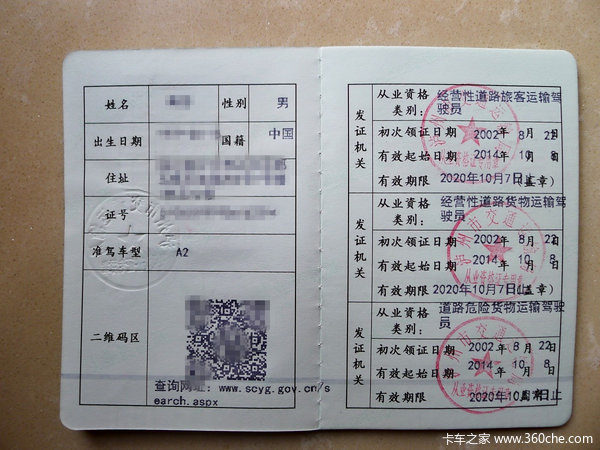 姓名
性别
男
出生日期
国籍
中国
住址
证号
准驾车型
A2
二维码区
查询网址: www.scyg.gov.cn/s
earch.aspx
发证机关
从业资格
类别:
经营性道路旅客运输驾
驶员
初次领证日期 2002年 8月 22日
有效起始日期 2014年 10月 8日
有效期限 2020年10月7日止(盖章)
发证机关
从业资格
类别:
经营性道路货物运输驾
驶员
初次领证日期 2002年 8月 22日
有效起始日期 2014年 10月 8日
有效期限 2020年10月7日止(盖章)
发证机关
从业资格
类别:
道路危险货物运输驾驶
员
初次领证日期 2002年 8月 22日
有效起始日期 2014年 10月 8日
有效期限
卡车之家 www.360che.com